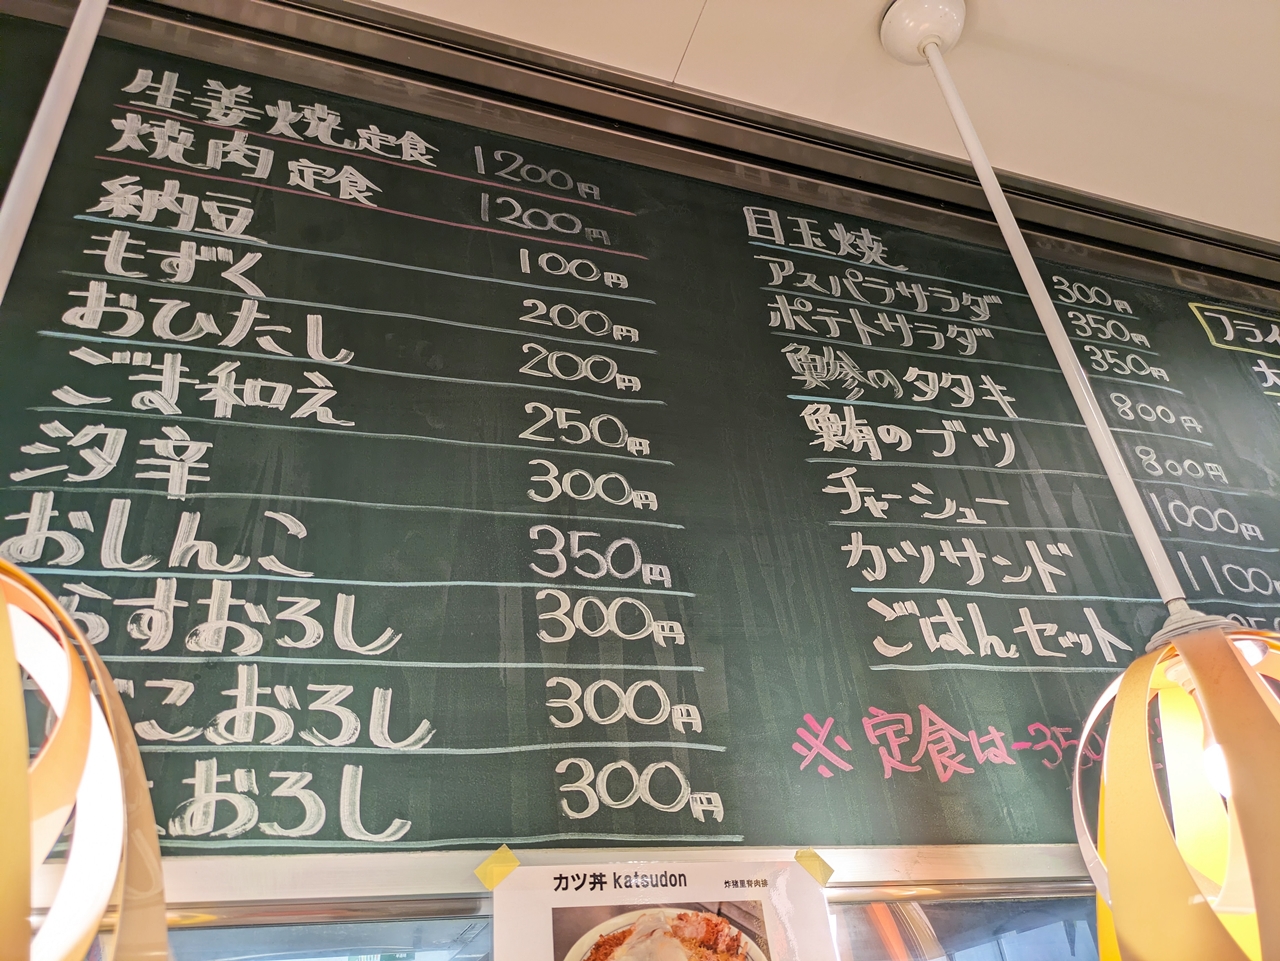 生姜焼定食 1200円
焼肉定食 1200円
納豆 100円
もずく 200円
おひたし 200円
ごま和え 250円
汐辛 300円
おしんこ 350円
らすおろし 300円
こおろし 300円
おろし 300円
目玉焼 300円
アスパラサラダ 350円
ポテトサラダ 350円
鰺のタタキ 800円
鮪のブツ 800円
チャーシュー 1000円
カツサンド 1100
ごはんセット
※定食は-350
フライ
大
カツ丼 katsudon 炸猪里脊肉排